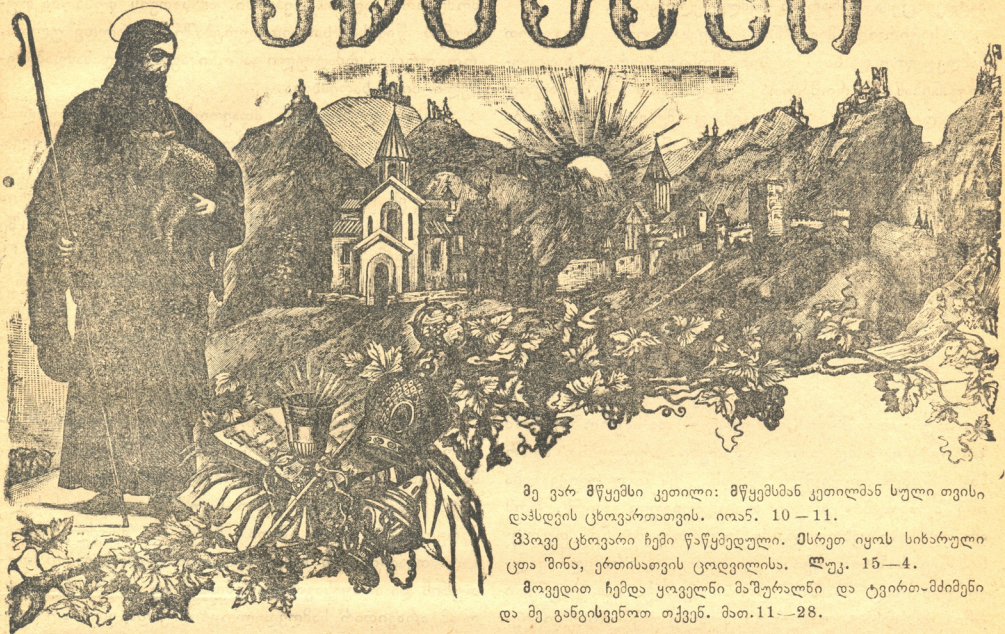 მე ვარ მწყემსი კეთილი: მწყემსმან კეთილმან სული თვისი
დაჰსდვის ცხოვართათვის. იოან. 10 – 11.
ვპოვე ცხოვარი ჩემი წაწყმედული. ესრეთ იყოს სიხარული
ცთა შინა, ერთისათვის ცოდვილისა. ლუკ. 15—4.
მოვედით ჩემდა ყოველნი მაშურალნი და ტვირთ-მძიმენი
და მე განგისვენოთ თქვენ. მათ.11—28.